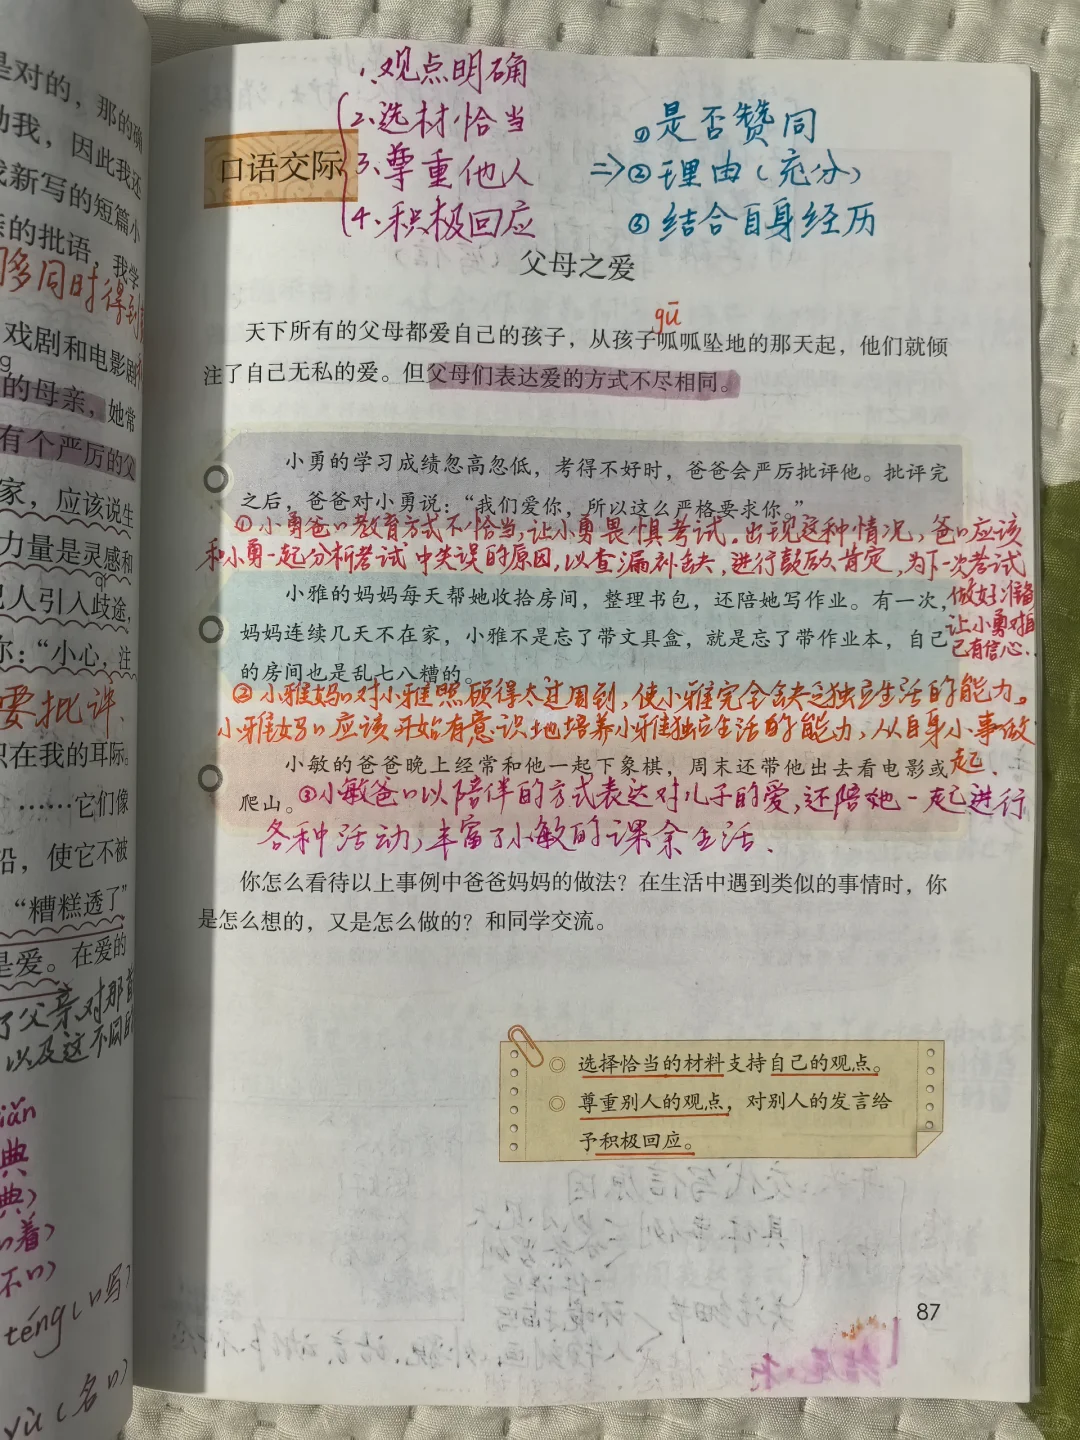 是对的，那的确
动我，因此我还
我新写的短篇小
亲的批语，我学
们多同时得到
戏剧和电影剧
的母亲，她常
有个严厉的父
家，应该说生
力量是灵感和
qí
人引入歧途，
你：“小心，注
要批评、
在我的耳际。
……它们像
沿，使它不被
“糟糕透了”
是爱。在爱的
了父亲对那首
以及这不同的
典
典）
着）
téng（写）
yù（名）
1、观点明确
2、选材恰当
3、尊重他人
4、积极回应
口语交际
①是否赞同
=>②理由（充分）
③结合自身经历
父母之爱
gū
天下所有的父母都爱自己的孩子，从孩子呱呱坠地的那天起，他们就倾
注了自己无私的爱。但父母们表达爱的方式不尽相同。
小勇的学习成绩忽高忽低，考得不好时，爸爸会严厉批评他。批评完
之后，爸爸对小勇说：“我们爱你，所以这么严格要求你。”
①小勇爸〃教育方式不恰当，让小勇畏惧考试。出现这种情况，爸〃应该
和小勇一起分析考试中失误的原因，以查漏补缺，进行鼓励、肯定，为下一次考试
做好准备
让小勇对自
己有信心.
小雅的妈妈每天帮她收拾房间，整理书包，还陪她写作业。有一次，
妈妈连续几天不在家，小雅不是忘了带文具盒，就是忘了带作业本，自己
的房间也是乱七八糟的。
②小雅妈〃对小雅照顾得太过周到，使小雅完全缺乏独立生活的能力。
小雅妈〃应该开始有意识地培养小雅独立生活的能力，从自身小事做
起、
小敏的爸爸晚上经常和他一起下象棋，周末还带他出去看电影或
爬山。
③小敏爸〃以陪伴的方式表达对儿子的爱，还陪她一起进行
各种活动，丰富了小敏的课余生活、
你怎么看待以上事例中爸爸妈妈的做法？在生活中遇到类似的事情时，你
是怎么想的，又是怎么做的？和同学交流。
◎ 选择恰当的材料支持自己的观点。
◎ 尊重别人的观点，对别人的发言给
予积极回应。
87